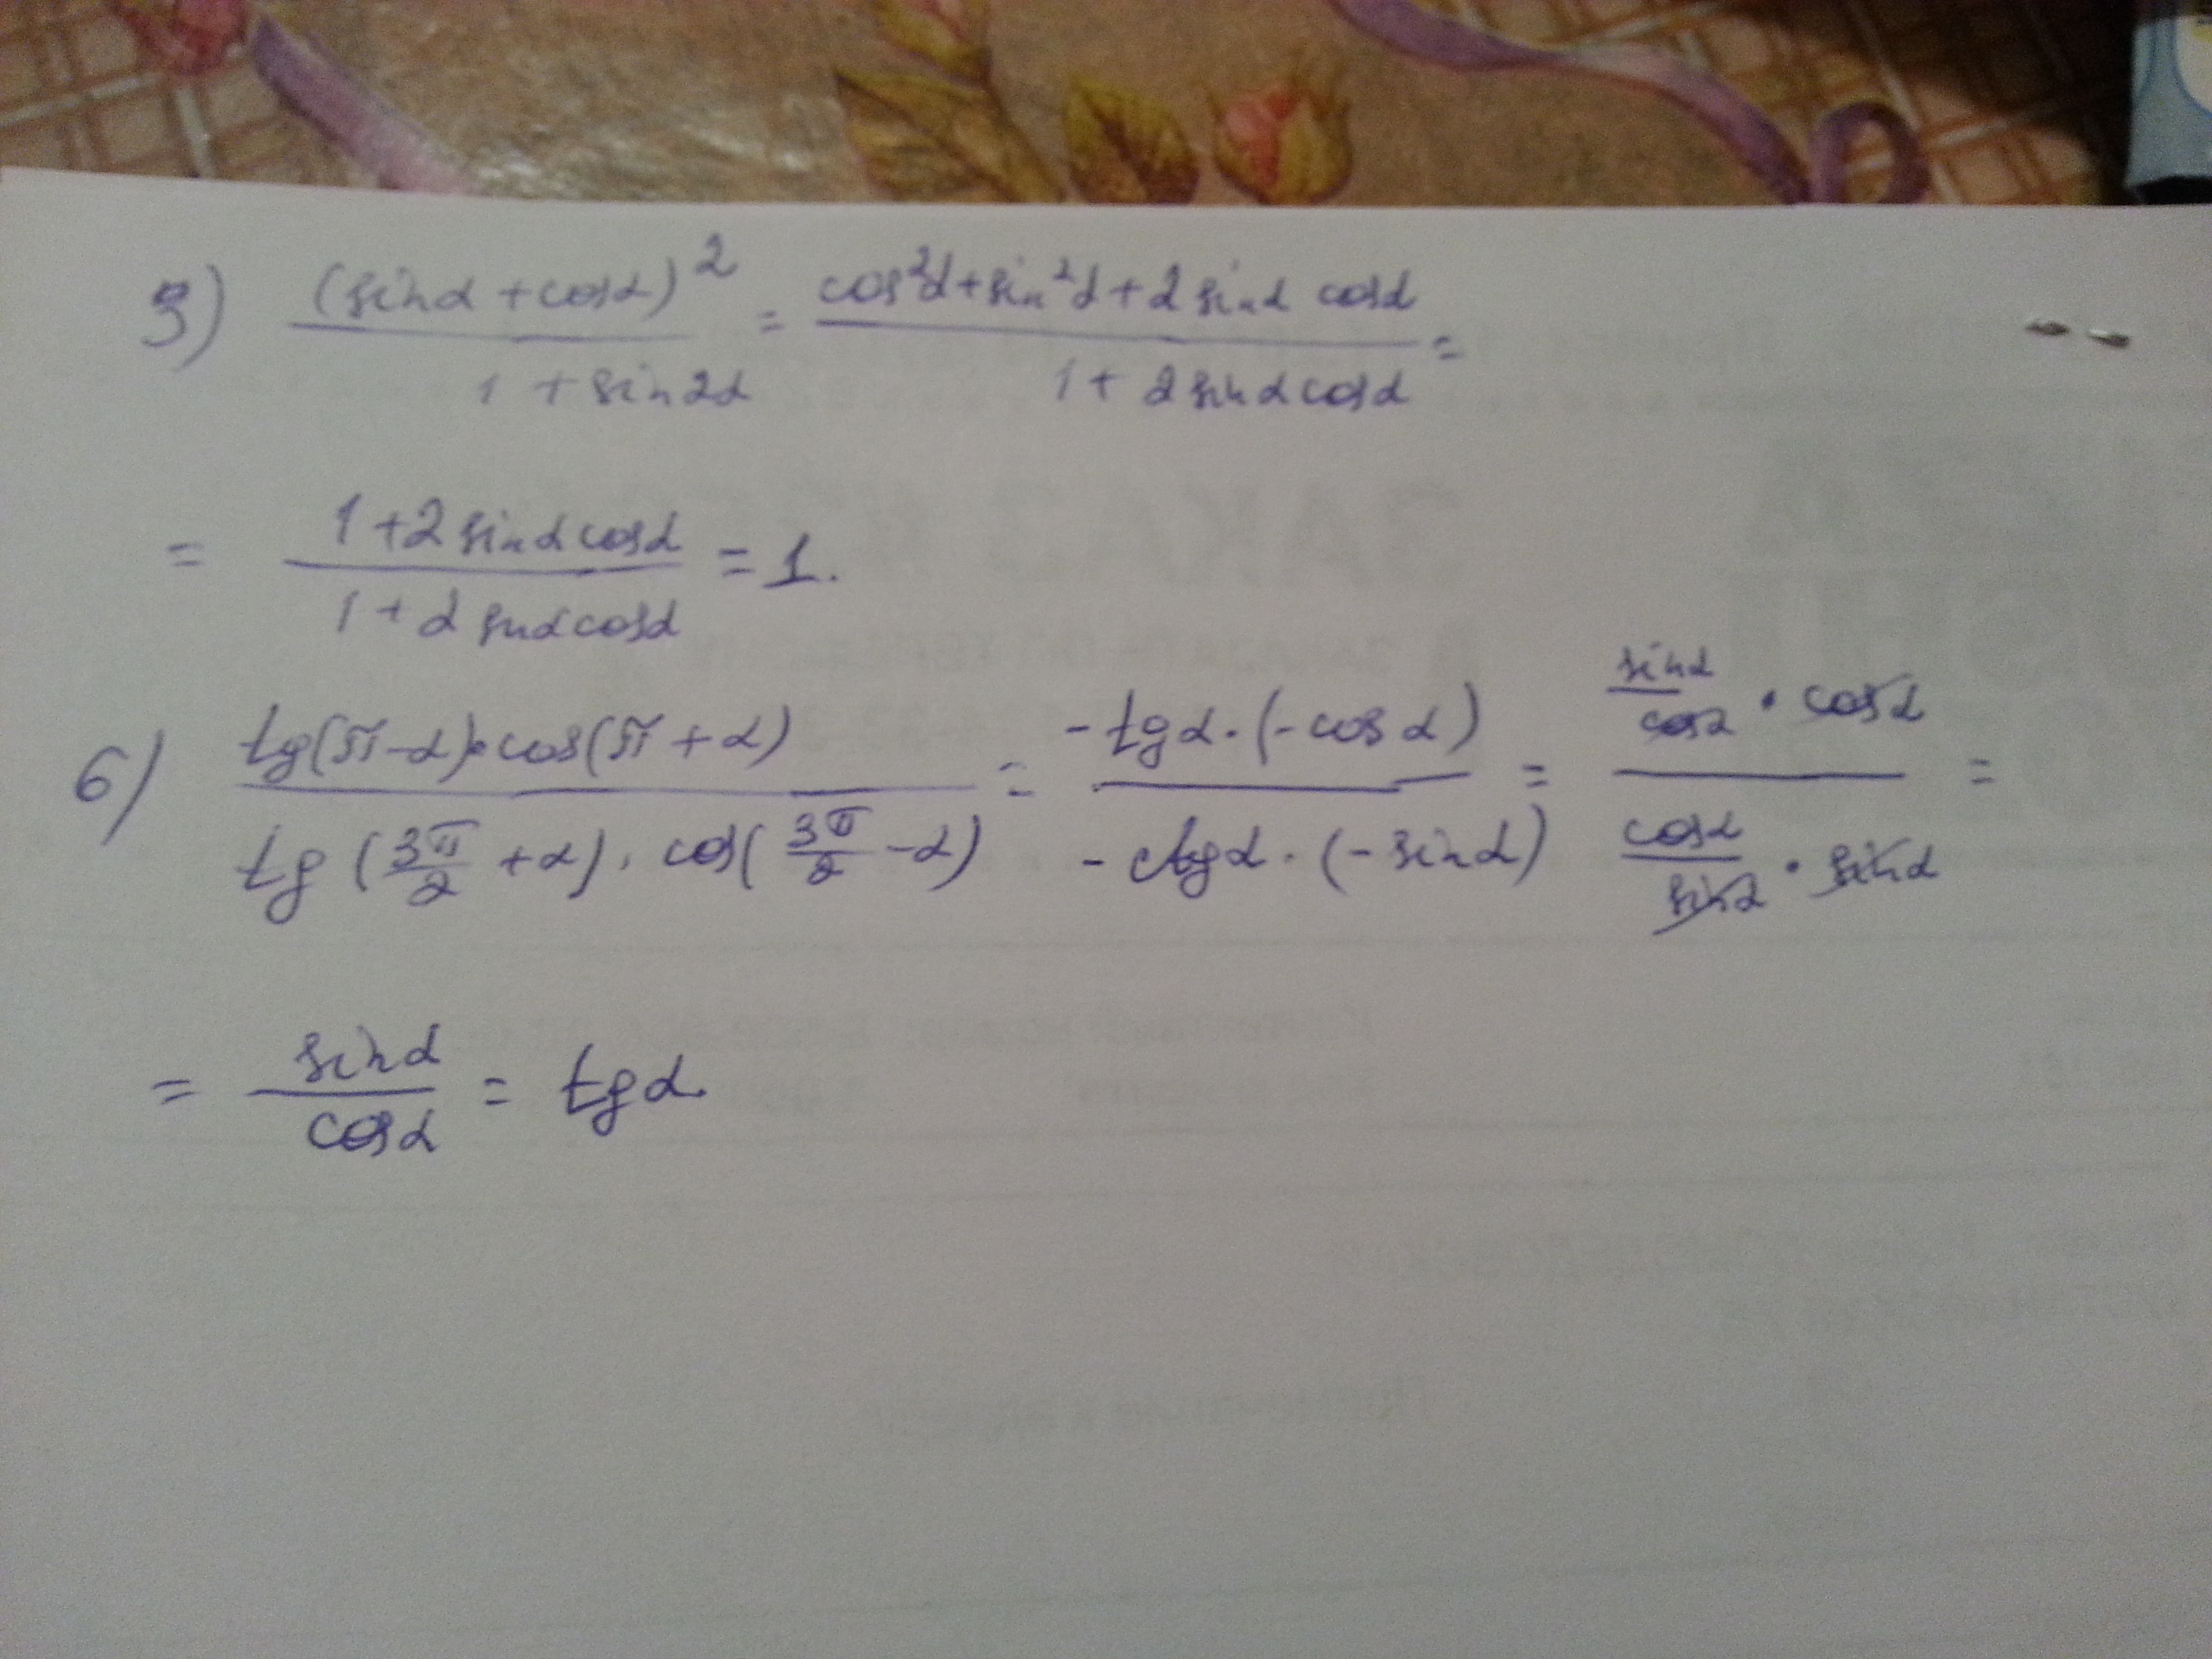 3) (sinα + cosα)² / (1 + sin2α) = (cos²α + sin²α + 2 sinα cosα) / (1 + 2 sinα cosα) =
= (1 + 2 sinα cosα) / (1 + 2 sinα cosα) = 1.
6) (tg(π - α) · cos(π + α)) / (tg(3π/2 + α) · cos(3π/2 - α)) = (-tgα · (-cosα)) / (-ctgα · (-sinα)) = (sinα/cosα · cosα) / (cosα/sinα · sinα) =
= sinα / cosα = tgα.